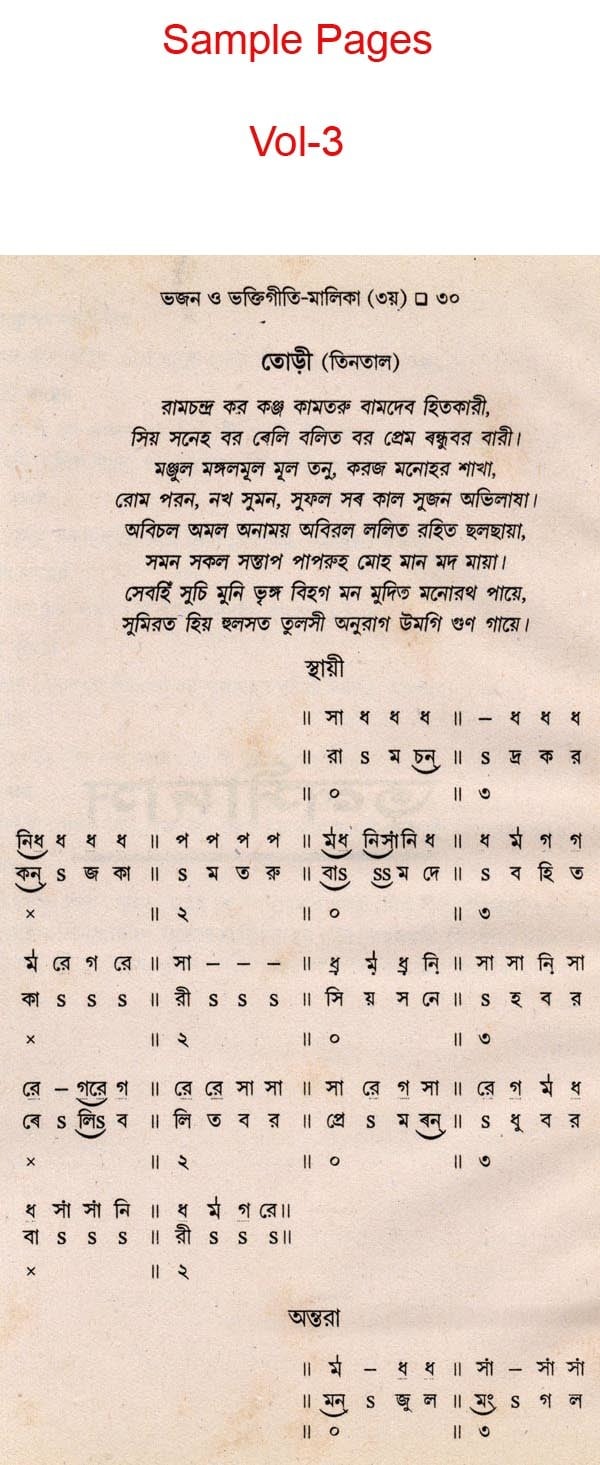 Sample Pages
Vol-3
ভজন ও ভক্তিগীতি-মালিকা (৩য়) □ ৩০
তোড়ী (তিনতাল)
রামচন্দ্র কর কঞ্জ কামতরু বামদেব হিতকারী,
সিয় সনেহ বর ৰেলি বলিত বর প্রেম ৰন্ধুবর বারী।
মঞ্জুল মঙ্গলমূল মূল তনু, করজ মনোহর শাখা,
রোম পরন, নখ সুমন, সুফল সৰ কাল সুজন অভিলাষা।
অবিচল অমল অনাময় অবিরল ললিত রহিত ছলছায়া,
সমন সকল সন্তাপ পাপরুহ মোহ মান মদ মায়া।
সেবহিঁ সুচি মুনি ভৃঙ্গ বিহগ মন মুদিত মনোরথ পায়ে,
সুমিরত হিয় হুলসত তুলসী অনুরাগ উমগি গুণ গায়ে।
স্থায়ী
॥ সা ধ ধ ধ ॥ – ধ ধ ধ
॥ রা S ম চন্ ॥ S দ্র ক র
॥ ০ ॥ ৩
নিধ ধ ধ ধ ॥ প প প প ॥ র্মধ নির্সানি ধ ॥ ধ র্ম গ গ
কন্ S জ কা ॥ S ম ত রু ॥ বাS SSম দে ॥ S ব হি ত
× ॥ ২ ॥ ০ ॥ ৩
র্ম রে গ রে ॥ সা – – – ॥ ধ̣ র্ম̣ ধ̣ নি̣ ॥ সা সা নি̣ সা
কা S S S ॥ রী S S S ॥ সি য় স নে ॥ S হ ব র
× ॥ ২ ॥ ০ ॥ ৩
রে – গরে গ ॥ রে রে সা সা ॥ সা রে গ সা ॥ রে গ র্ম ধ
ৰে S লিS ব ॥ লি ত ব র ॥ প্রে S ম ৰন্ ॥ S ধু ব র
× ॥ ২ ॥ ০ ॥ ৩
ধ র্সা র্সা নি ॥ ধ র্ম গ রে॥
বা S S S ॥ রী S S S॥
× ॥ ২
অন্তরা
॥ র্ম – ধ ধ ॥ র্সা – র্সা র্সা
॥ মন্ S জু ল ॥ মং S গ ল
॥ ০ ॥ ৩